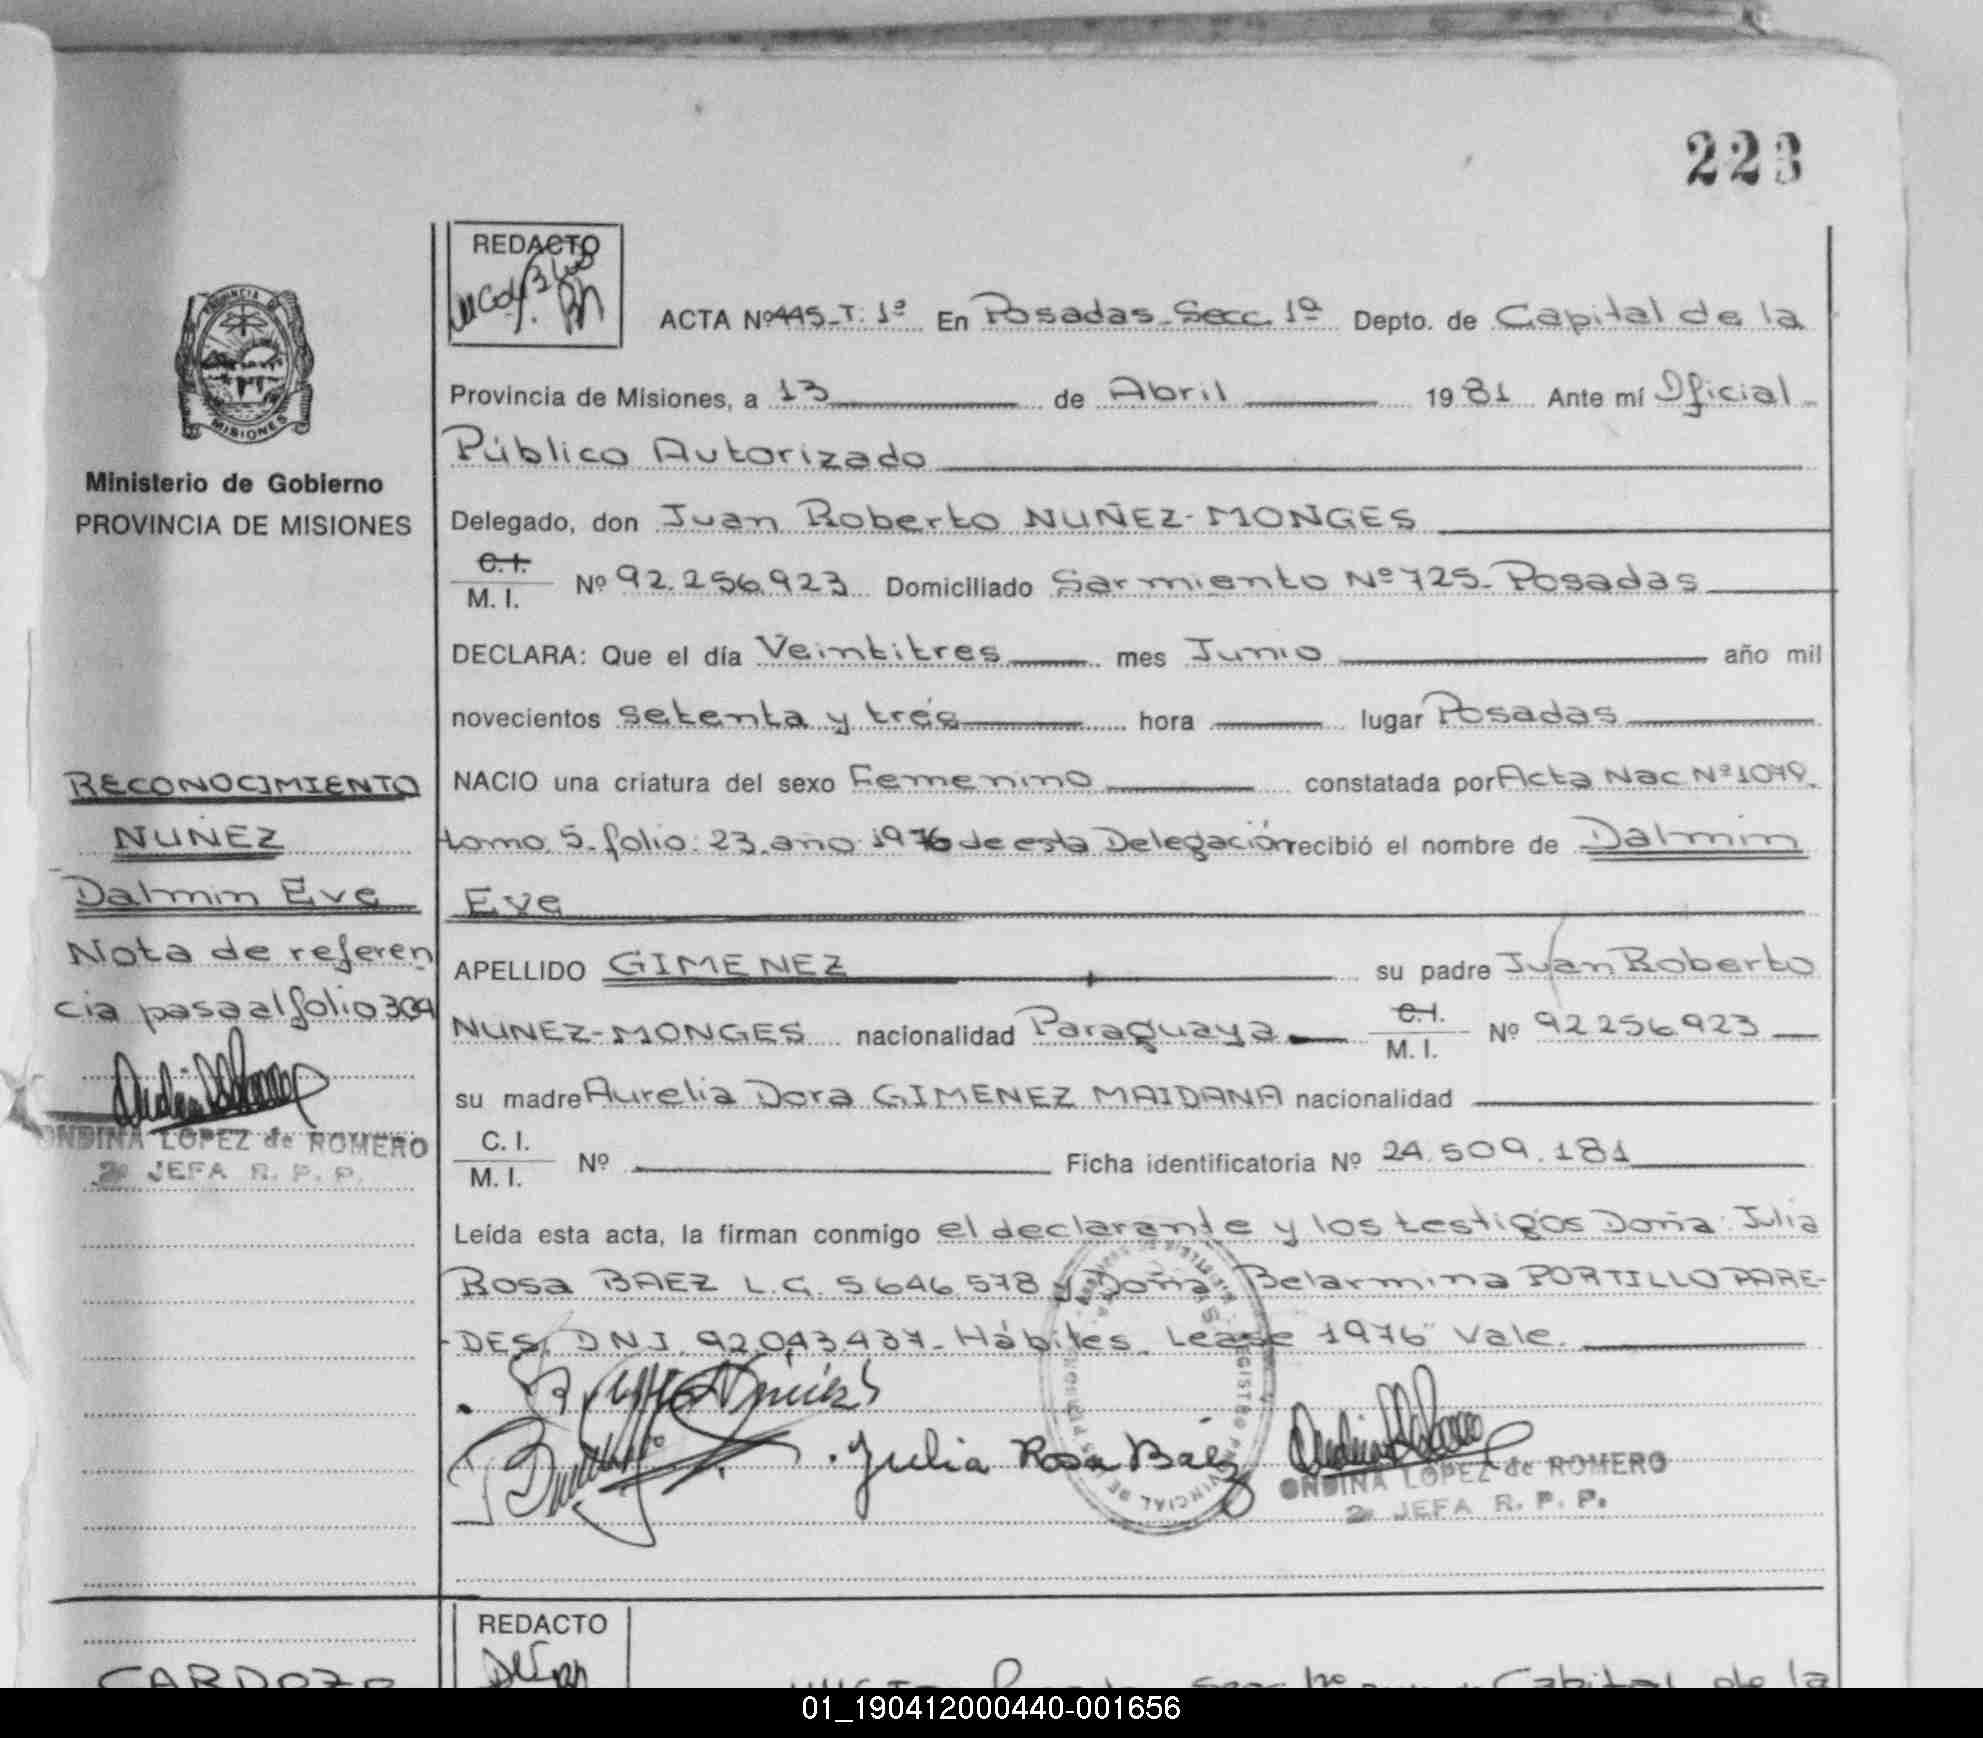 223
REDACTO
ACTA Nº 445-T: 1º En Posadas-Secc. 1º Depto. de Capital de la
Provincia de Misiones, a 13 de Abril 1981 Ante mí Oficial
Público Autorizado
Delegado, don Juan Roberto NUÑEZ-MONGES
C.I. M.I. Nº 92.256.923 Domiciliado Sarmiento Nº 725-Posadas
DECLARA: Que el día Veintitres mes Junio año mil
novecientos setenta y tres hora lugar Posadas
NACIO una criatura del sexo Femenino constatada por Acta Nac Nº 1049
tomo 5. folio: 23. año 1976 de esta Delegación recibió el nombre de Dalmin
Eve
APELLIDO GIMENEZ su padre Juan Roberto
NUNEZ-MONGES nacionalidad Paraguaya C.I. M.I. Nº 92 256.923
su madre Aurelia Dora GIMENEZ MAIDANA nacionalidad
C. I. M. I. Nº Ficha identificatoria Nº 24.509.181
Leída esta acta, la firman conmigo el declarante y los testigos Doña: Julia
Rosa BAEZ L.C. 5 646.578 y Doña Belarmina PORTILLO PARE-
DES, DNI. 92.043.437- Hábiles. Lease "1976" Vale.
Julia Rosa Báez
ONDINA LOPEZ de ROMERO
2º JEFA R. P. P.
PROVINCIA DE
MISIONES
Ministerio de Gobierno
PROVINCIA DE MISIONES
RECONOCIMIENTO
NUÑEZ
Dalmin Eve
Nota de referen
cia pasa al folio 304
ONDINA LOPEZ de ROMERO
2º JEFA R. P. P.
REDACTO
CARDOZO
Capital de la
01_190412000440-001656